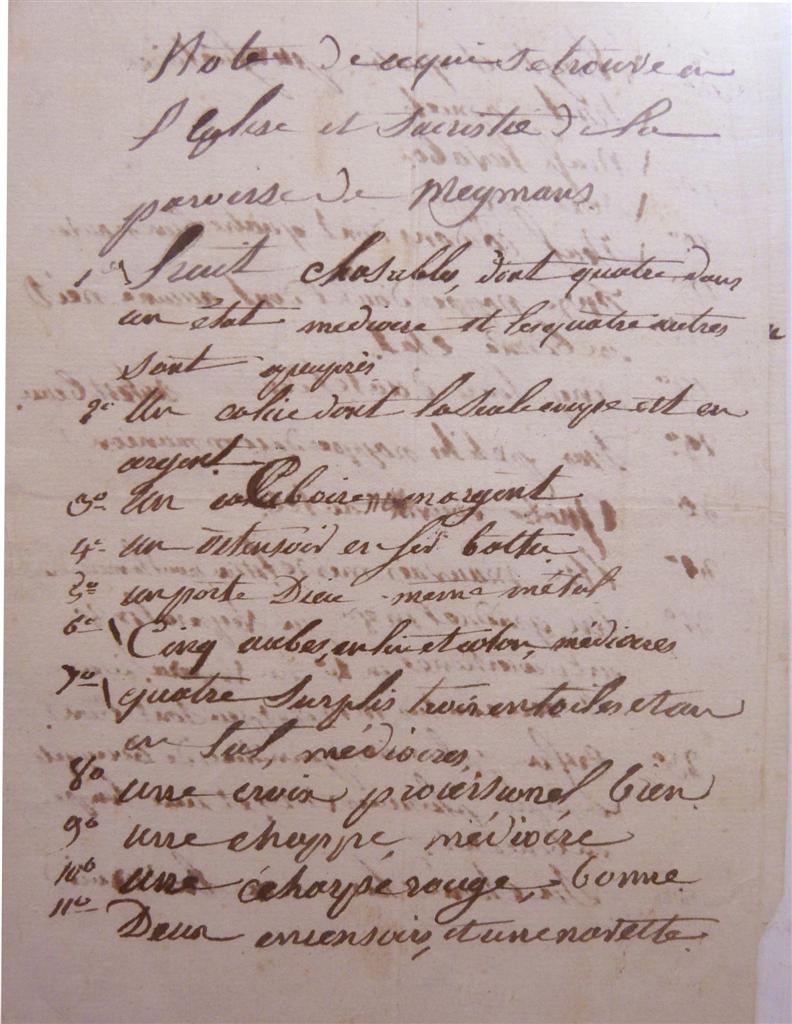 Note de cequi setrouve en
l'Eglise et Sacristie de la
paroisse de Meymans
1° huit chasubles, dont quatre dans
un état mediocre et lesquatre autres
sont apeuprès
2° Un calice dont la seule coupe est en
argent
3° Un Ciboire en argent
4° un ostensoir en
5° un porte Dieu meme métal
6° Cinq aubes, en lin et coton, médiocres
7° quatre Surplis trois en toiles et un
en tul, médiocres
8° une croix processionel bien
9° une chappe médiocre
10° une écharpe rouge, bonne
11° Deux encensoirs, et une navette